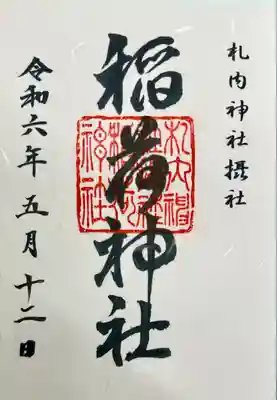 札内神社摂社
稲荷神社
令和六年五月十二日